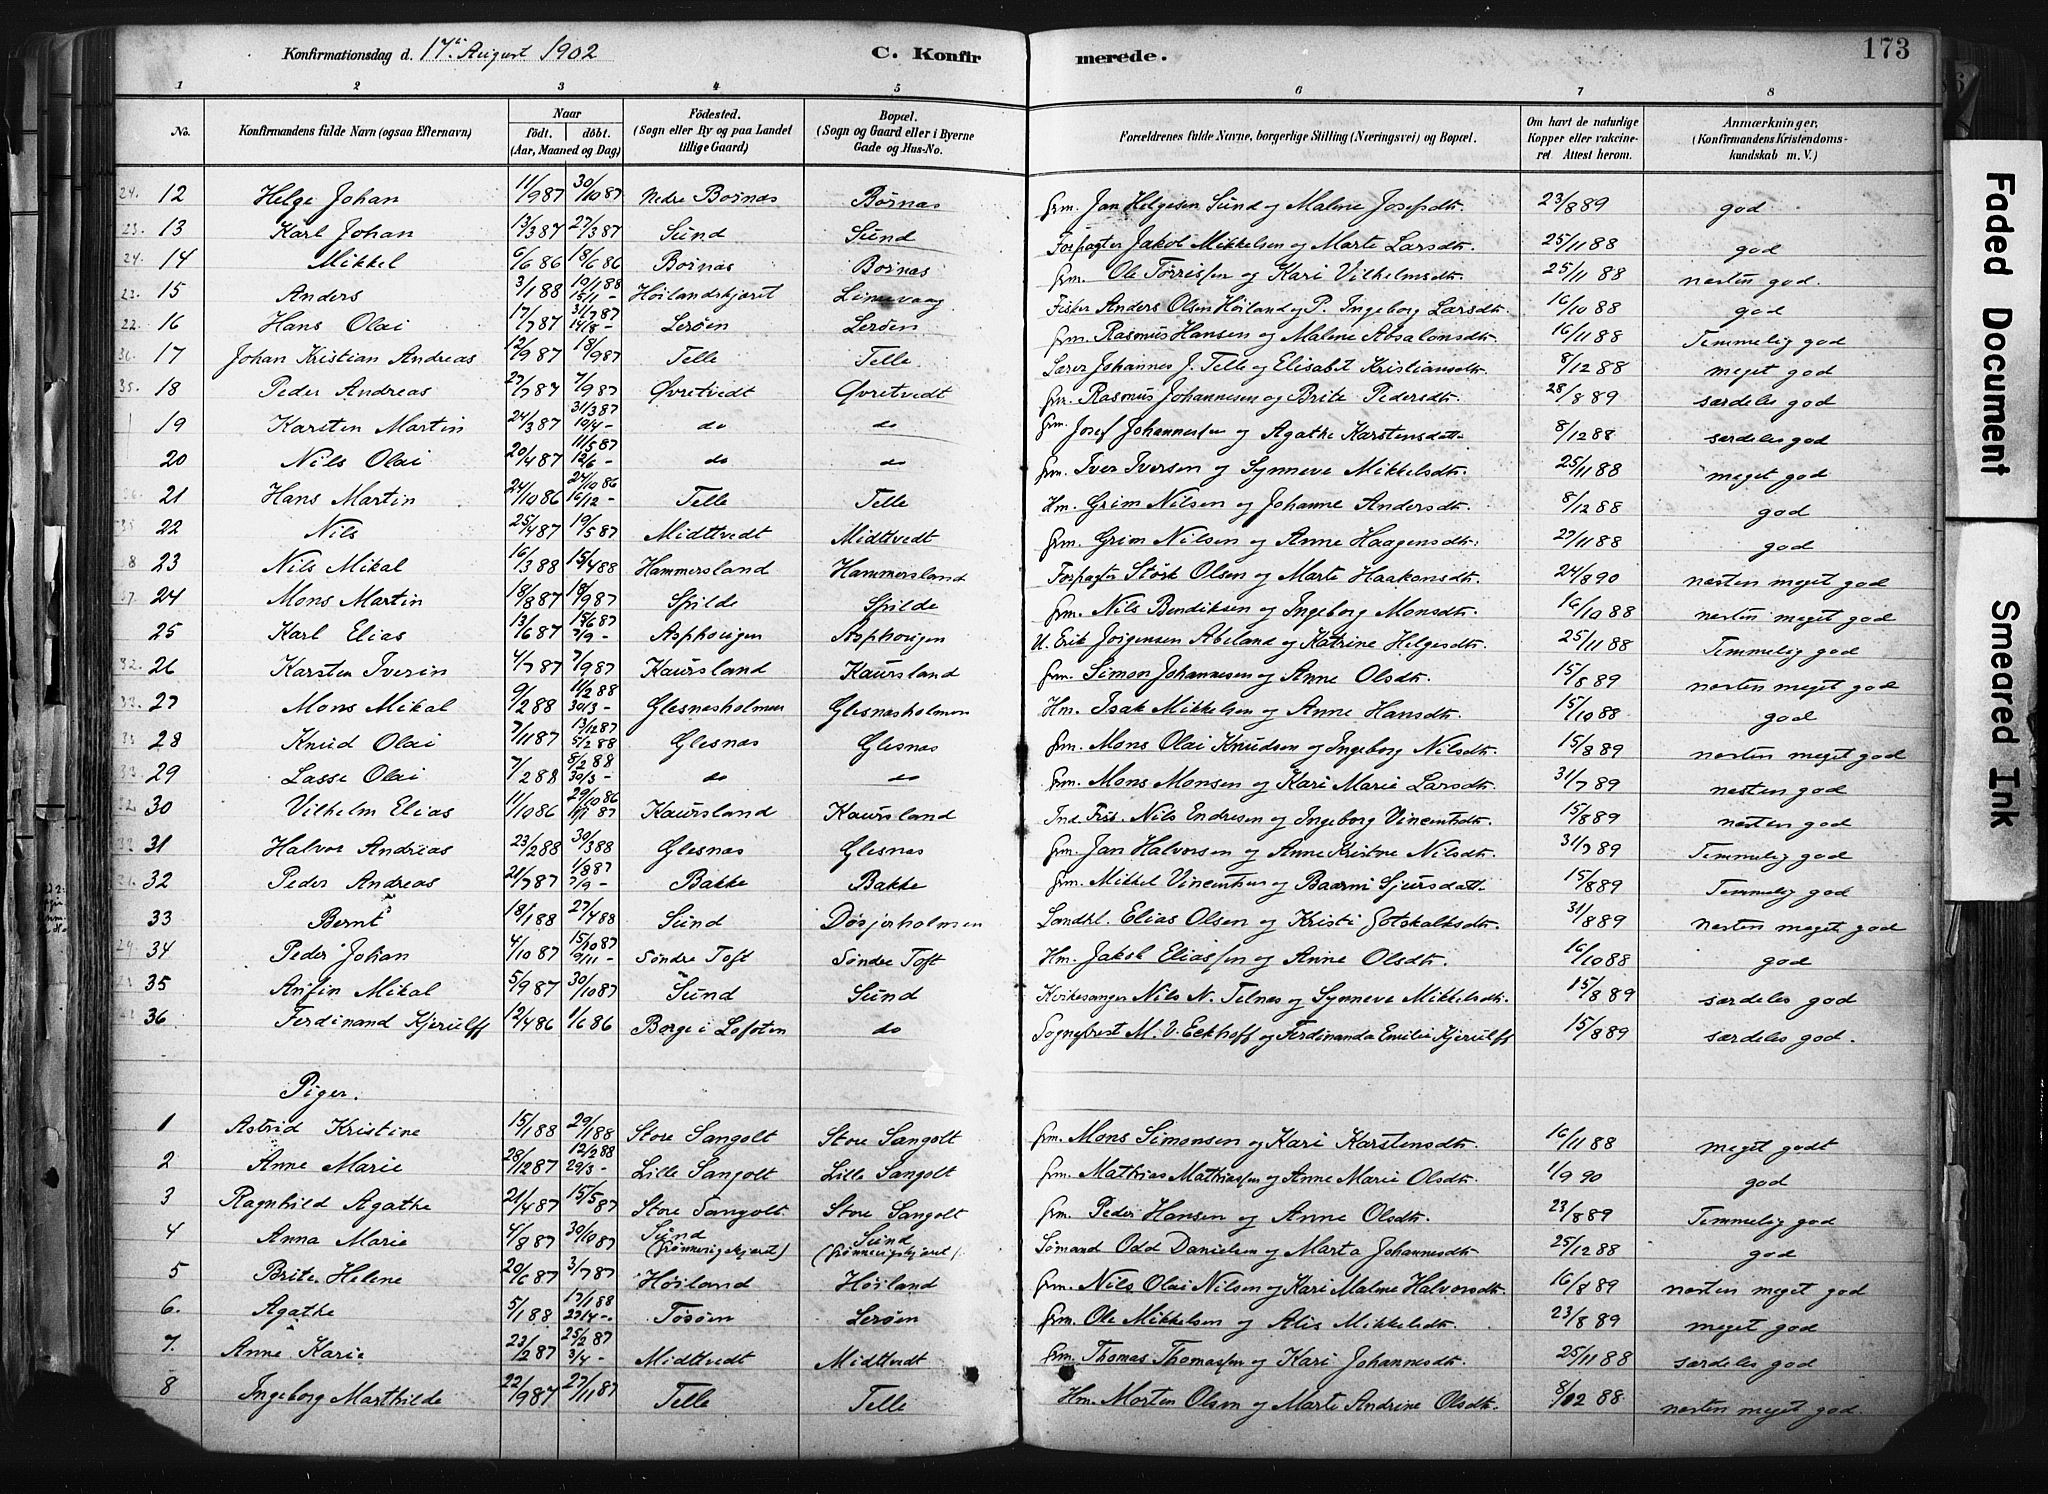 Konfirmationsdag d. 17de August 1902 C. Konfirmerede. 173
1 2 3 4 5 6 7 8
No. Konfirmandens fulde Navn (ogsaa Efternavn) Naar født. døbt. (Aar, Maaned og Dag) Fødested. (Sogn eller By og paa Landet tillige Gaard) Bopæl. (Sogn og Gaard eller i Byerne Gade og Hus-No. Forældrenes fulde Navne, borgerlige Stilling (Næringsvei) og Bopæl. Om havt de naturlige Kopper eller vakcineret. Attest herom. Anmærkninger, (Konfirmandens Kristendomskundskab m. V.)
12 Helge Johan 11/9 87 30/10 87 Nedre Børnæs Børnæs Grm. Jan Helgesen Sund og Malene Josefsdtr. 23/8 89 god
13 Karl Johan 13/3 87 27/3 87 Sund Sund Forpagter Jakob Mikkelsen og Marte Larsdtr. 25/11 88 god
14 Mikkel 6/6 86 18/6 86 Børnæs Børnæs Grm. Ole Tørrissen og Kari Vilhelmsdtr. 25/11 88 næsten god.
15 Anders 3/1 88 10/1 88 15/1 - Høilandskjæret Limevaag Fisker Anders Olsen Høiland og P. Ingeborg Larsdtr. 16/10 88 god
16 Hans Olai 17/7 87 31/7 87 14/8 - Lerøen Lerøen Grm. Rasmus Hansen og Malene Absalonsdtr. 16/11 88 Temmelig god
17 Johan Kristian Andreas 12/9 87 18/9 87 Telle Telle Lærer Johannes J. Telle og Elisabet Kristiansdtr. 8/12 88 meget god
18 Peder Andreas 27/7 87 7/9 87 Øvretvedt Øvretvedt Grm. Rasmus Johannesen og Brite Pedersdtr. 28/8 89 særdeles god
19 Karsten Martin 24/3 87 31/3 87 10/4 - do do Grm. Josef Johannessen og Agathe Karstensdatt. 8/12 88 særdeles god
20 Nils Olai 20/4 87 11/5 87 12/6 - do do Grm. Iver Iversen og Synneve Mikkelsdtr. 25/11 88 meget god
21 Hans Martin 24/10 86 24/10 86 16/12 - Telle Telle Hm. Grim Nilsen og Johanne Andersdtr. 8/12 88 god
22 Nils 25/4 87 19/5 87 Midttvedt Midttvedt Grm. Grim Nilsen og Anne Haagensdtr. 27/11 88 god
23 Nils Mikal 16/3 88 15/4 88 Hammersland Hammersland Forpagter Størk Olsen og Marte Haakonsdtr. 24/8 90 næsten meget god
24 Mons Martin 18/8 87 18/9 87 Spilde Spilde Grm. Nils Bendiksen og Ingeborg Monsdtr. 16/10 88 næsten meget god
25 Karl Elias 13/6 87 15/6 87 7/9 - Asphovigen Asphovigen U. Erik Jørgensen Abeland og Katrine Helgesdtr. 25/11 88 Temmelig god
26 Karsten Iverin 4/7 87 7/9 87 Kaursland Kaursland Grm. Simon Johannesen og Anne Olsdtr. 15/8 89 næsten meget god
27 Mons Mikal 9/2 88 11/2 88 30/3 - Glesnæsholmen Glesnæsholmen Hm. Isak Mikkelsen og Anne Hansdtr. 15/10 88 god
28 Knud Olai 7/11 87 13/12 87 5/2 88 Glesnæs Glesnæs Grm. Mons Olai Knudsen og Ingeborg Nilsdtr. 15/8 89 næsten meget god
29 Lasse Olai 7/2 88 8/2 88 30/3 - do do Grm. Mons Monsen og Kari Marie Larsdtr. 31/7 89 næsten god
30 Vilhelm Elias 11/10 86 29/10 86 Kaursland Kaursland Ind. Fisk. Nils Endresen og Ingeborg Vincentsdtr. 15/8 89 næsten god
31 Halvor Andreas 23/2 88 30/3 88 Glesnæs Glesnæs Grm. Jan Halvorsen og Anne Kristine Nilsdtr. 31/7 89 Temmelig god
32 Peder Andreas 21/7 87 1/8 87 7/9 - Bakke Bakke Grm. Mikkel Vincentsen og Baarni Sjursdatt. 15/8 89 Temmelig god
33 Bernt 18/1 88 27/4 88 Sund Døsjerholmen Landhl. Elias Olsen og Kristi Gotskalksdtr. 31/8 89 næsten meget god
34 Peder Johan 4/10 87 15/10 87 9/11 - Søndre Toft Søndre Toft Hm. Jakob Eliassen og Anne Olsdtr. 16/10 88 god
35 Anfin Mikal 5/9 87 30/10 87 Sund Sund Kirkesanger Nils N. Telnæs og Synneve Mikkelsdtr. 15/8 89 særdeles god
36 Ferdinand Kjerulff 12/4 86 1/6 86 Borge i Lofoten do Sogneprest M. V. Eckhoff og Ferdinanda Emilie Kjerulff 15/8 89 særdeles god.
Piger.
1 Astrid Kristine 15/1 88 29/1 88 Store Sangolt Store Sangolt Grm. Mons Simonsen og Kari Karstensdtr. 16/11 88 meget godt
2 Anne Marie 28/12 87 12/2 88 29/3 - Lille Sangolt Lille Sangolt Grm. Mathias Mathiassen og Anne Marie Olsdtr. 1/9 90 god
3 Ragnhild Agathe 21/4 87 15/5 87 Store Sangolt. Store Sangolt Grm. Peder Hansen og Anne Olsdtr. 23/8 89 Temmelig god
4 Anna Marie 4/8 87 30/10 87 Sund (Grønnevigskjæret) Sund (Grønnevigskjæret) Sømand Odd Danielsen og Marta Johannesdtr. 25/12 88 god
5 Brite Helene 20/6 87 3/7 87 Høiland Høiland Grm. Nils Olai Nilsen og Kari Malene Halvorsdtr. 16/8 89 næsten meget god
6. Agathe 5/1 88 17/1 88 22/4 - Tøsøen Lerøen Grm. Ole Mikkelsen og Alis Mikkelsdtr. 23/8 89 meget god
7. Anne Karie 23/2 87 25/2 87 3/4 - Midttvedt Midttvedt Grm. Thomas Thomassen og Kari Johannesdtr. 25/11 88 særdeles god
8 Ingeborg Marthilde 22/9 87 27/11 87 Telle Telle Hm. Morten Olsen og Marte Andrine Olsdtr. 8/12 88 næsten meget god.
Faded Document
Smeared Ink